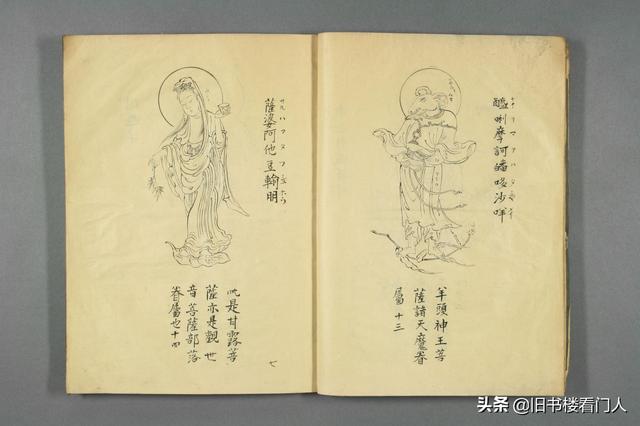 醯唎摩訶皤哆沙咩
羊頭神王菩
薩諸天魔眷
屬 十三
薩婆阿他豆輸明
此是甘露菩
薩亦是觀世
音菩薩部落
眷屬也十四
七
头条 @旧书楼看门人